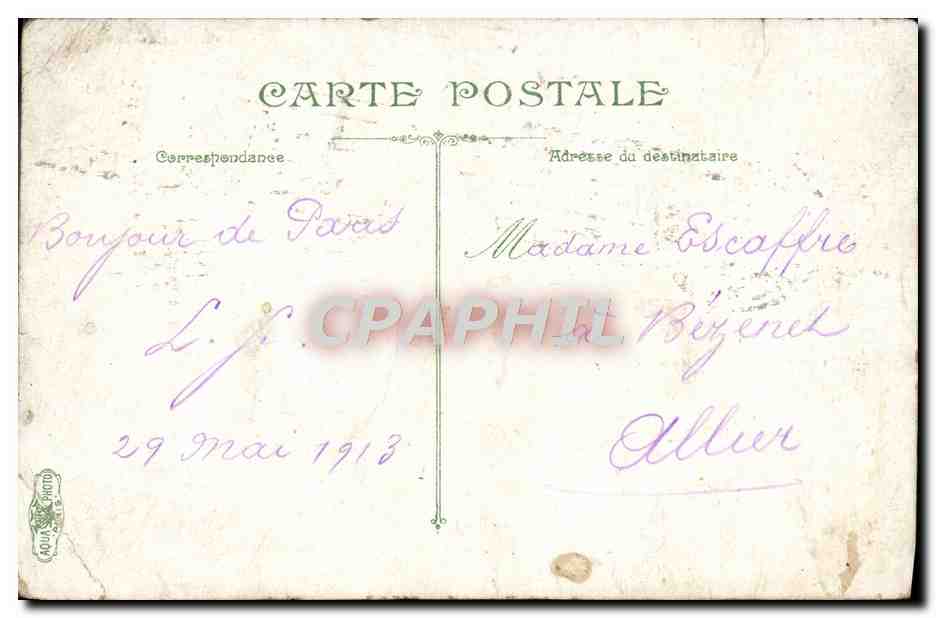 CARTE POSTALE
Correspondance
Adresse du destinataire
Bonjour de Paris
L. J.
29 Mai 1913
Madame Escaffre
à Bézenet
Allier
CPAPHIL
AQUA PHOTO
PARIS